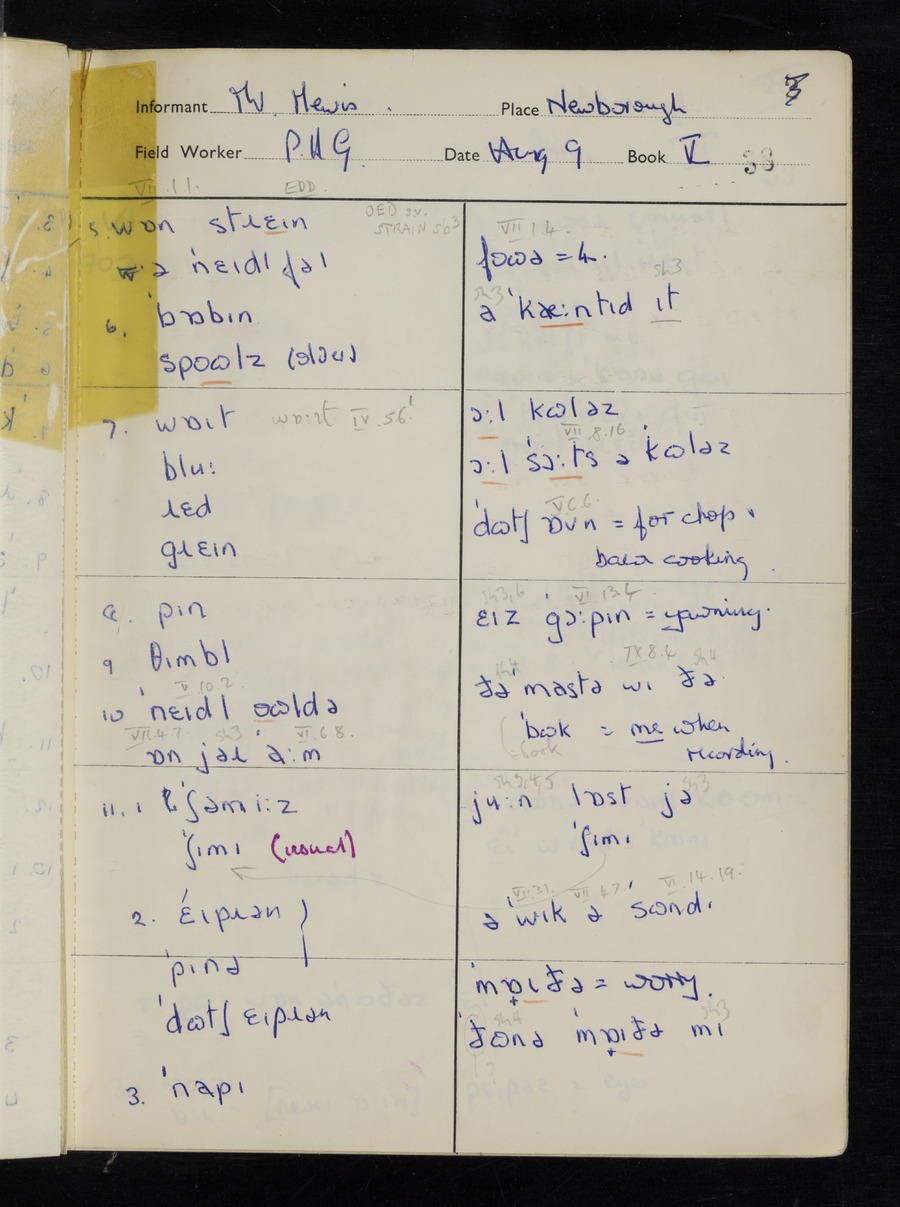 Informant Mr. Hewis. Place Newborough
Field Worker P.H.G. Date Aug 9 Book V 38
VII.1.1. EDD.
5. wɒn stɹɛin
OED sv.
STRAIN sb3
ə ˈneidl fəl
6. ˈbɒbin
spoωlz (older)
7. wɒit wɒist IV.56.
blu:
ɹɛd
gɹɛin
8. pin
9 ˈθimbl
V 10.2.
10 ˈneidl oωldə
VII.4.7 sh3 VI.6.8.
ɒn jəɹ ˈa:m
11. 1 ʃəmi:z
ˈʃimɪ (usual)
2. ˈɛipɹən
ˈpinə
ˈdωtʃ ɛipɹən
3. ˈnapɪ
VII 1.4.
foωə = 4.
sh3 sh3
ə ˈkæ:ntɪd ɪt
ɔ:l kωləz
VII.8.16
ɔ:l ˈsɔ:ts ə ˈkωləz
V.6.6.
ˈdωtʃ ɒvn = for chop
bacon cooking.
sh3,6 VI 13.4
ɛɪz ˈgɔ:pin = yawning.
sh4 IX.8.4 sh4
ðə ˈmastə wɪ ðə
ˈbωk = me when
=book recording.
sh3,4,5 sh3
ju:n lɒst jə
ˈʃimɪ
VII.3.1. VII 4.7 VI.14.19.
ə ˈwɪk ə ˈsωnd.
ˈmɒɪðə = worry.
sh4 sh3
ˈðωnə ˈmɒɪðə mɪ